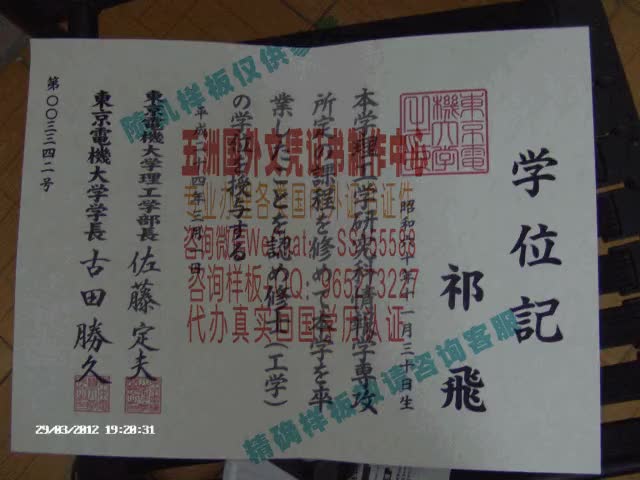 学位記
祁飛
昭和 十年十一月三十日生
本学理工学研究科情報学専攻
所定の課程を修めて本学を卒
業したことを認め修士（工学）
の学位を授与する
平成二十四年三月 日
東京電機大学理工学部長 佐藤定夫
東京電機大学学長 古田勝久
第〇〇三三四二号
随机样板仅供参考
五洲国外文凭证书制作中心
专业办理各国 证件
咨询微信Wechat: 55588
咨询样板QQ: 965273227
代办真实回国学历认证
精确样板敬请咨询客服
29/03/2012 19:20:31